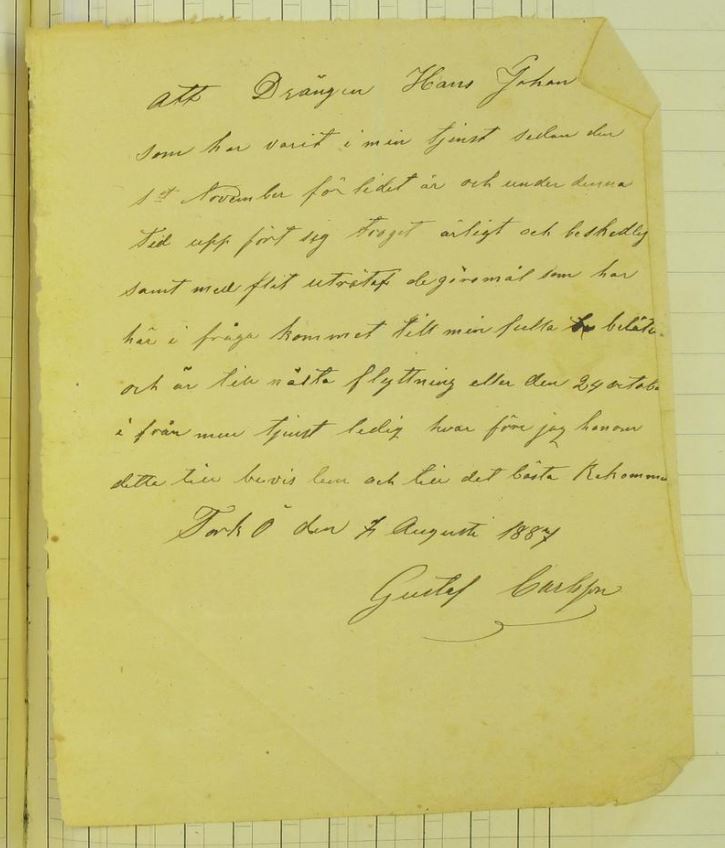 att Drängen Hans Johan
som har varit i min tjenst sedan den
1st November förlidet år och under denna
tid upp fört sig troget ärligt och beskedlig
samt med flit uträtat de göromål som har
här i fråga kommet till min fulla belåte
och är till nästa flyttning eller den 24 octobe
i från min tjenst ledig hvar före jag honom
detta till bevis lem och till det bästa Rekomme
Torkö den 7 Augusti 1887
Gustaf Carlsson